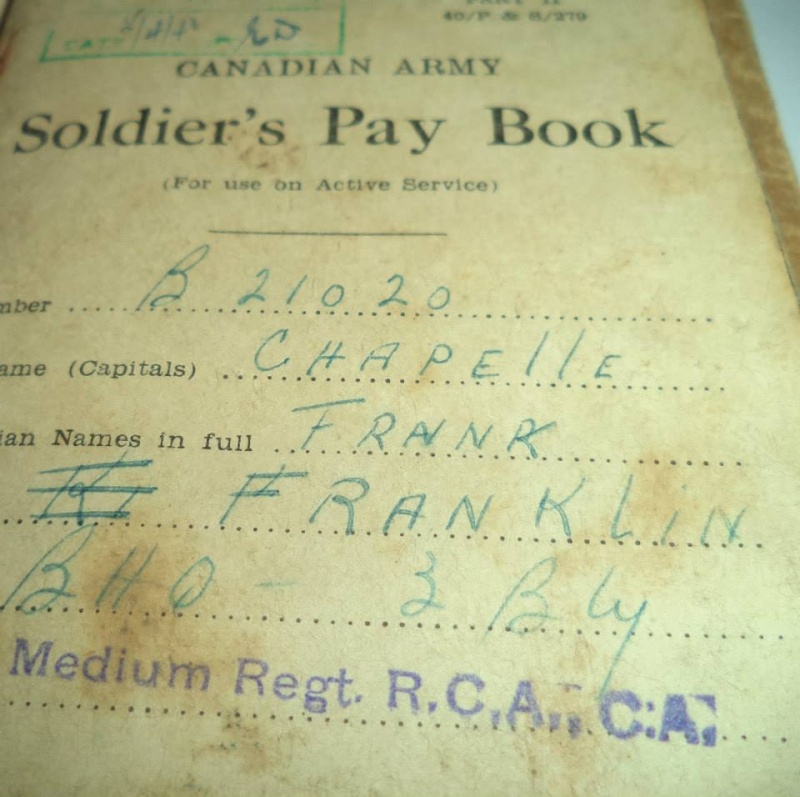 PART II
40/P & S/279
CANADIAN ARMY
Soldier's Pay Book
(For use on Active Service)
mber B 21020
ame (Capitals) CHAPEllE
ian Names in full FRANK
FRANKLIN
BHQ - 3 Bty
Medium Regt. R.C.A., C.A.